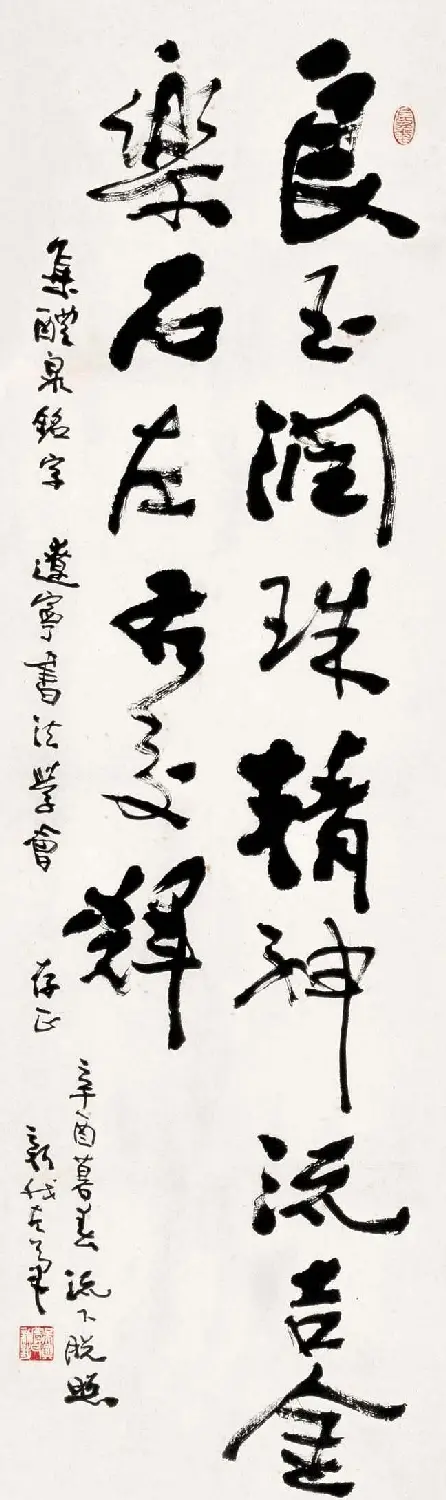 良玉潤珠精神流吉金
樂石左右交輝
集醴泉銘字 遼寧書法學會 存正
辛酉暮春 流下脱照
新我左筆